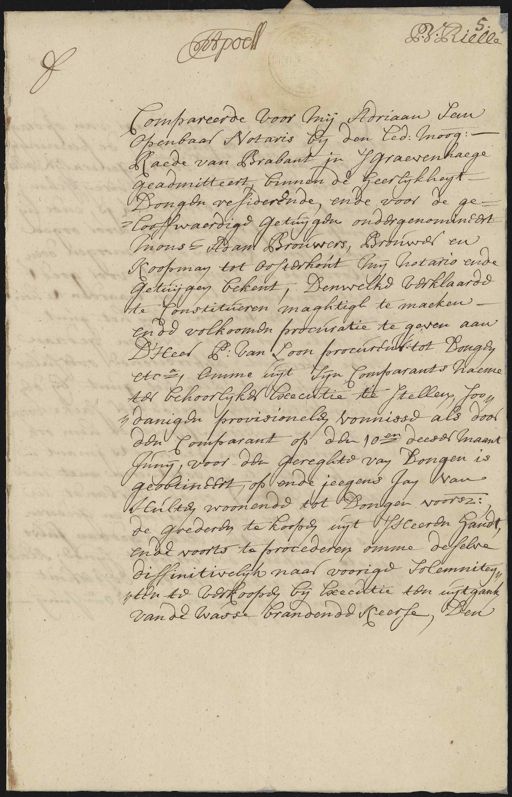 5.
Compareerde voor mij Adriaan
openbaar Notaris bij den Ed: Moog:
Raede van Brabant in 'sGraevenhaege
geadmitteert, binnen de Heerlykheyt
Dongen residerende, ende voor de ge=
=looffwaerdige getuygen ondergenomineert
Mons:r Adam Brouwers, Brouwer en
Koopman tot Oosterhout mij notario ende
getuygen bekent, Denwelke verklaarde
te Constitueren maghtigh te maeken
ende volkoomen procuratie te geven aan
D'Heer P: van Loon procureur tot Dongen
etc:a, omme uyt sijn Comparants naeme
ter behoorlijker Executie te stellen, soo,,
,,danigen provisionelen vonnisse als door
den Comparant op den 10en deeser maant
Junij, voor den gereghte van Dongen is
geobtineert, op ende jeegens Jay van
woonende tot Dongen voorsz:,
de goederen te koopen uyt 'sHeeren handt,
ende voorts te procederen omme deselve
diffinitivelijk naar voorige solemnitey,,
,,ten te verkoopen bij Executie ten uytgank
van de wasse brandende Keerse, Den